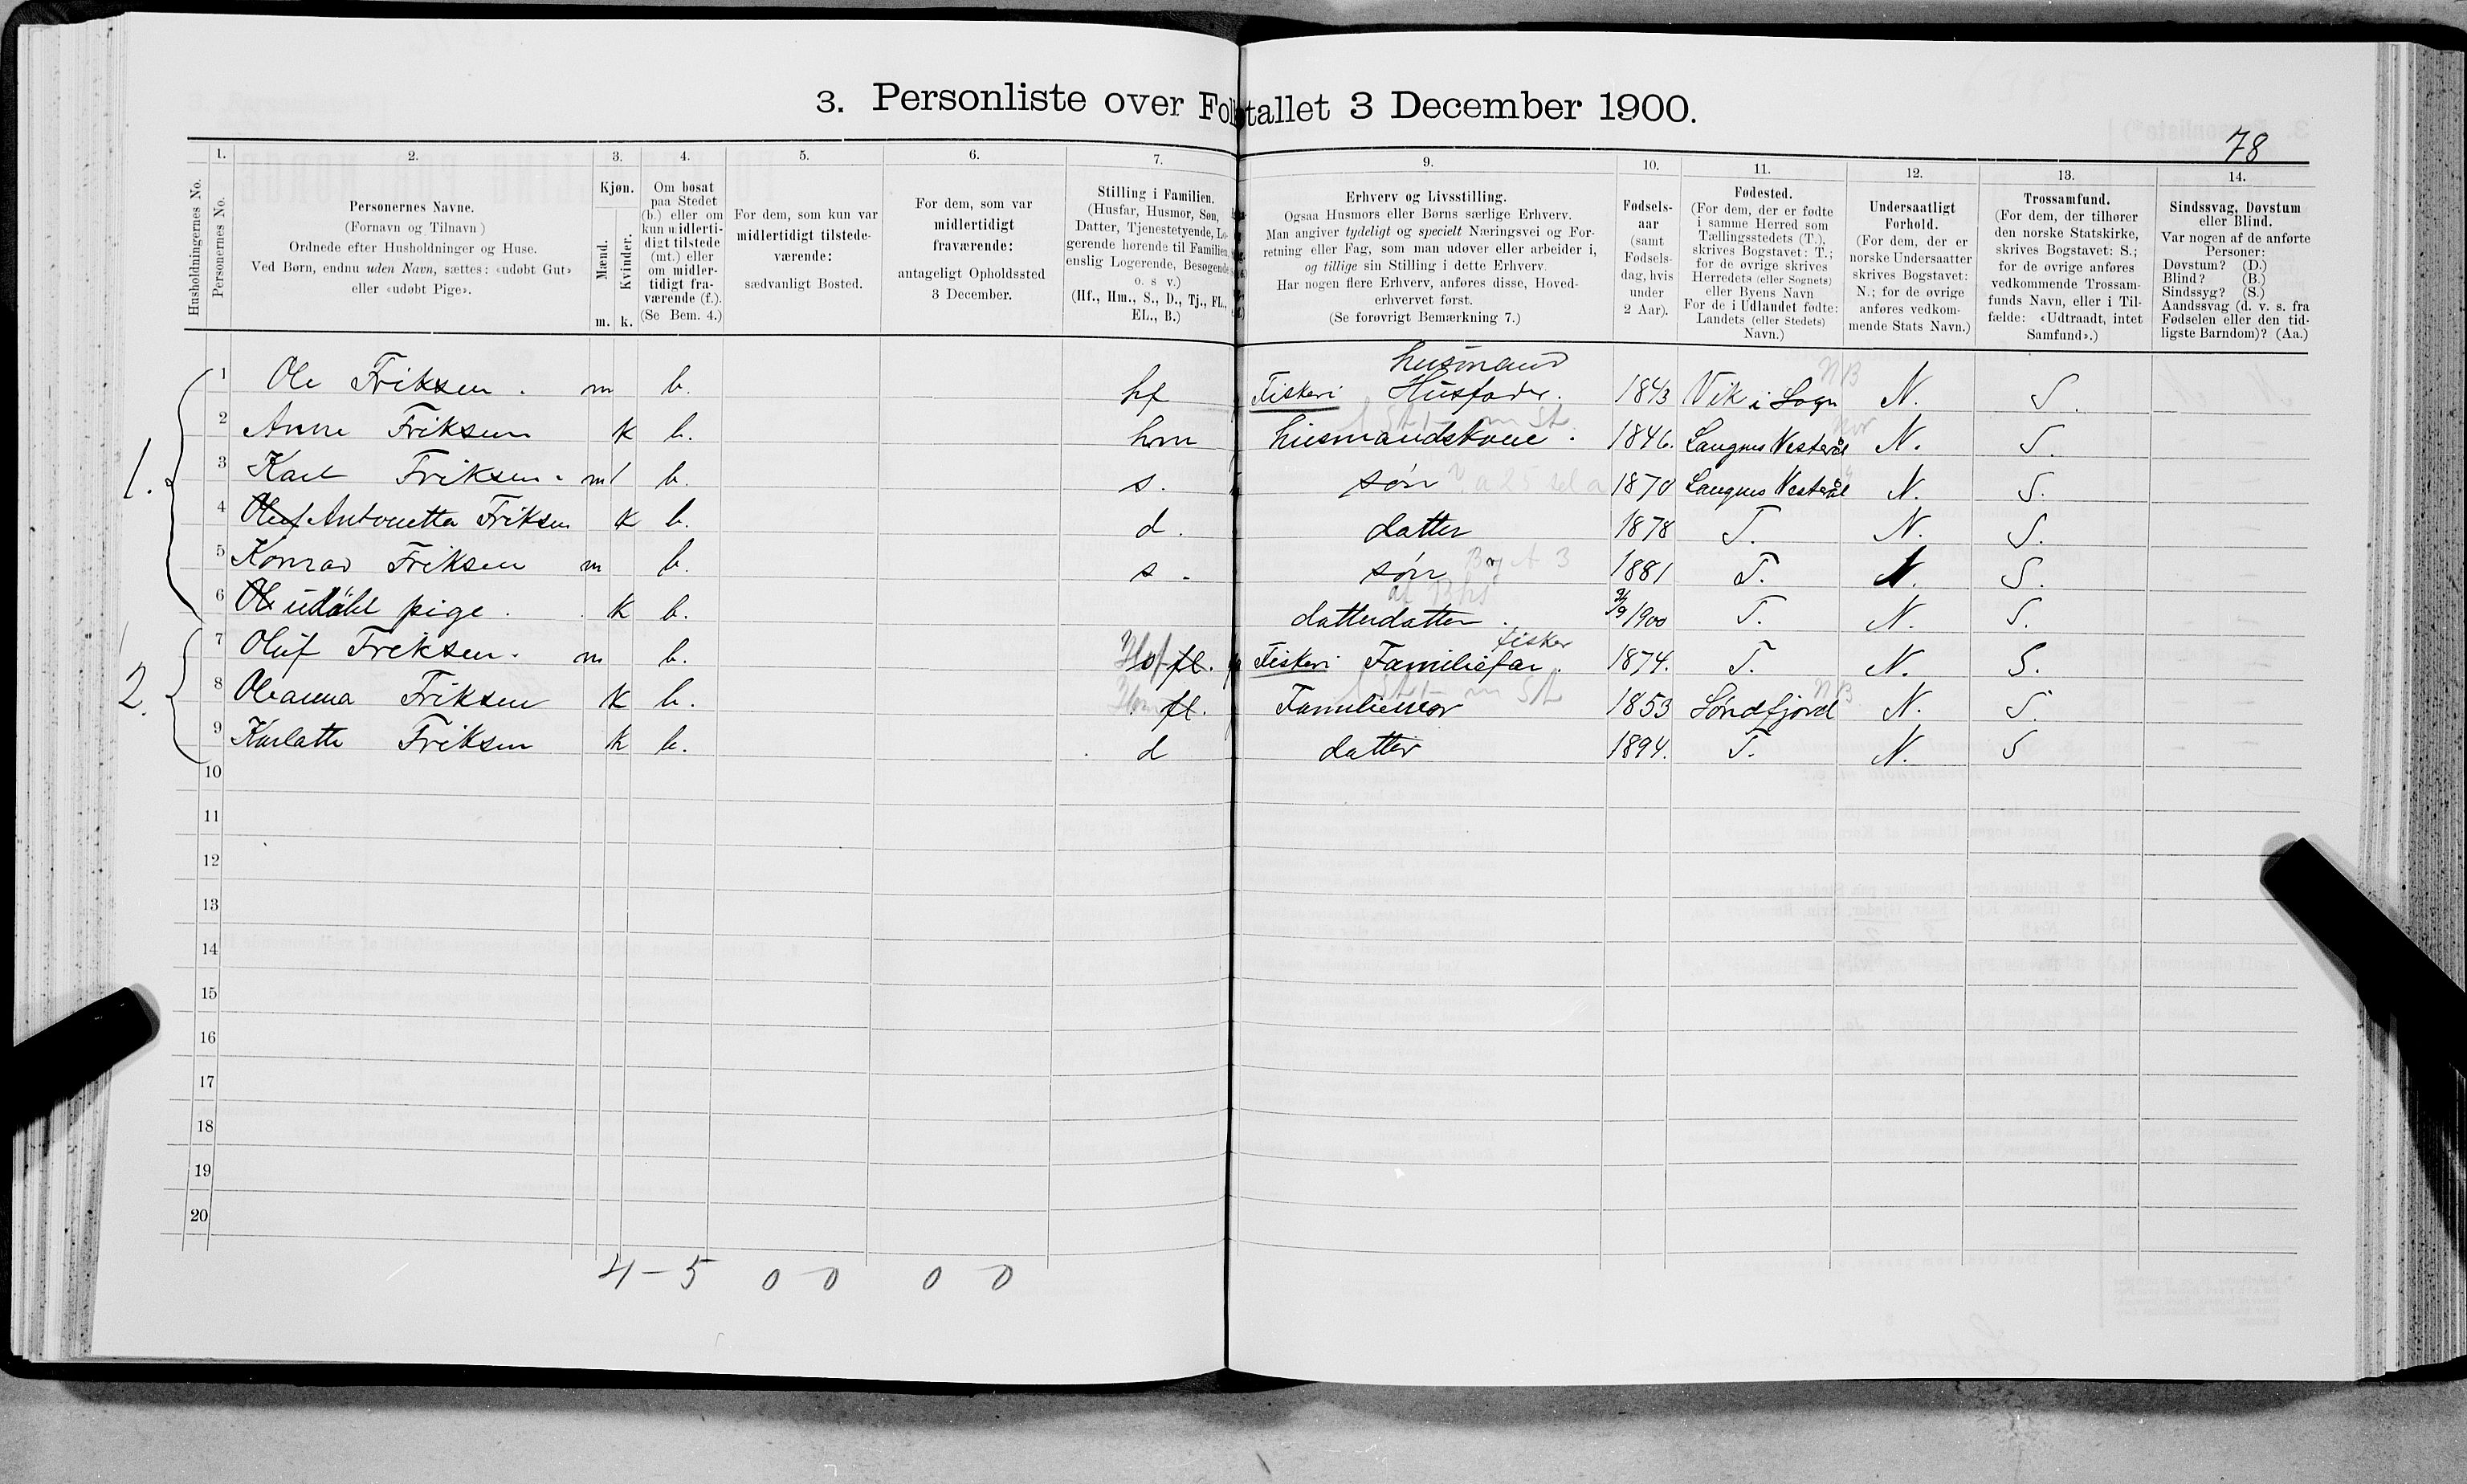 3. Personliste over Folketallet 3 December 1900.
78
1. 2. 3. 4. 5. 6. 7. 9. 10. 11. 12. 13. 14.
Husholdningernes No.
Personernes No.
Personernes Navne.
(Fornavn og Tilnavn)
Ordnede efter Husholdninger og Huse.
Ved Børn, endnu uden Navn, sættes: «udøbt Gut»
eller «udøbt Pige».
Kjøn.
Mænd.
Kvinder.
m. k.
Om bosat
paa Stedet
(b.) eller om
kun midlerti-
digt tilstede
(mt.) eller
om midler-
tidigt fra-
værende (f.).
(Se Bem. 4.)
For dem, som kun var
midlertidigt tilstede-
værende:
sædvanligt Bosted.
For dem, som var
midlertidigt
fraværende:
antageligt Opholdssted
3 December.
Stilling i Familien.
(Husfar, Husmor, Søn,
Datter, Tjenestetyende, Lo-
gerende hørende til Familien,
enslig Logerende, Besøgende
o. s v.)
(Hf., Hm., S., D., Tj., FL.,
EL., B.)
Erhverv og Livsstilling.
Ogsaa Husmors eller Børns særlige Erhverv.
Man angiver tydeligt og specielt Næringsvei og For-
retning eller Fag, som man udøver eller arbeider i,
og tillige sin Stilling i dette Erhverv.
Har nogen flere Erhverv, anføres disse, Hoved-
erhvervet først.
(Se forøvrigt Bemærkning 7.)
Fødsels-
aar
(samt
Fødsels-
dag, hvis
under
2 Aar).
Fødested.
(For dem, der er fødte
i samme Herred som
Tællingsstedets (T.),
skrives Bogstavet: T.;
for de øvrige skrives
Herredets (eller Sognets)
eller Byens Navn
For de i Udlandet fødte:
Landets (eller Stedets)
Navn.)
Undersaatligt
Forhold.
(For dem, der er
norske Undersaatter
skrives Bogstavet:
N.; for de øvrige
anføres vedkom-
mende Stats Navn.)
Trossamfund.
(For dem, der tilhører
den norske Statskirke,
skrives Bogstavet: S.;
for de øvrige anføres
vedkommende Trossam-
funds Navn, eller i Til-
fælde: «Udtraadt, intet
Samfund».)
Sindssvag, Døvstum
eller Blind.
Var nogen af de anførte
Personer:
Døvstum? (D.)
Blind? (B.)
Sindssyg? (S.)
Aandssvag (d. v. s. fra
Fødselen eller den tid-
ligste Barndom)? (Aa.)
husmand
1. 1 Ole Friksen. m b. hf Fiskeri Husfader. 1843 Vik i Sogn N. S.
2 Anne Friksen k b. hm husmandskone. 1846. Langnes Vesterål N. S.
3 Karl Friksen. m b. s. søn 1870 Langnes Vesterål N. S.
4 Oluf Antonetta Friksen k b. d. datter 1878 T. N. S.
5 Konrad Friksen m b. s. søn 1881 T. N. S.
6 Ol udøbt pige. k b. datterdatter. 1900 T. N. S.
fisker
2. 7 Oluf Freksen. m b. Hf fl. Fiskeri Familiefar. 1874. T. N. S.
8 Oleanna Friksen k b. Hm fl. Familiemor 1853 Søndfjord N. S.
9 Karlatte Friksen k b. d datter 1894. T. N. S
10
11
12
13
14
15
16
17
18
19
20
4 - 5 0 0 0 0